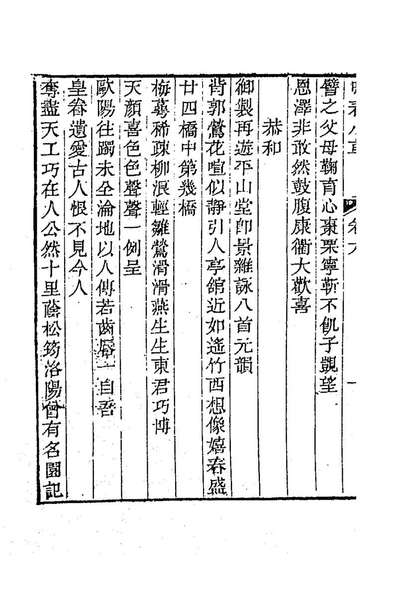 卷六
譬之父母鞠育心棗栗寧靳不飢子覬望
恩澤非敢然鼓腹康衢大歡喜
恭和
御製再遊平山堂卽景雜詠八首元韻
背郭鶯花喧似靜引人亭舘近如遙竹西想像嬉春盛
廿四橋中第幾橋
梅蕚稀疎柳浪輕雛鶯滑滑燕生生東君巧博
天顏喜色色聲聲一例呈
歐陽往躅未全淪地以人傳若齒唇一自吾
皇眷遺愛古人恨不見今人
奪盡天工巧在人公然十里蔭松筠洛陽曾有名園記